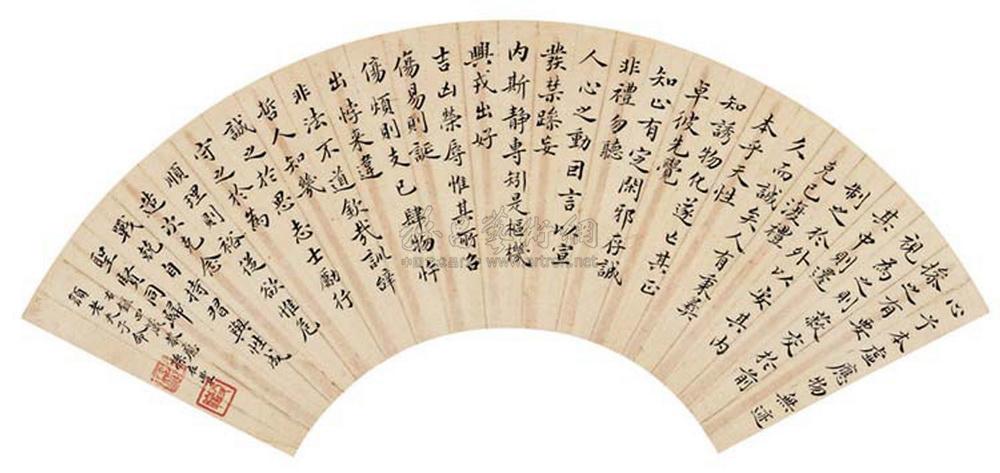 心兮本虛應物無迹
操之有要
視為之則蔽交於前
其中則遷
制之於外以安其內
克己復禮
久而誠矣人有秉彝
本乎天性
知誘物化遂亡其正
卓彼先覺
知止有定閑邪存誠
非禮勿聽
人心之動因言以宣
發禁躁妄
內斯靜專矧是樞機
興戎出好
吉凶榮辱惟其所召
傷易則誕
傷煩則支己肆物忤
出悖來違
非法不道欽哉訓辭
哲人知幾
誠之於思志士勵行
守之於為
順理則裕從欲惟危
造次克念
戰兢自持習與性成
聖賢同歸
雅昌藝術網
www.artron.net